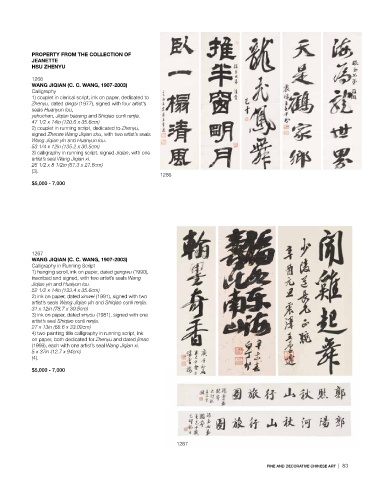 PROPERTY FROM THE COLLECTION OF
JEANETTE
HSU ZHENYU
1266
WANG JIQIAN (C. C. WANG, 1907-2003)
Calligraphy
1) couplet in clerical script, ink on paper, dedicated to
Zhenyu, dated dingsi (1977), signed with four artist's
seals Huaiyun lou,
47 1/2 x 14in (120.6 x 35.6cm)
2) couplet in running script, dedicated to Zhenyu,
signed Zhenze Wang Jiqian zhu, with two artist's seals:
Wang Jiqian yin and Huaiyun lou.
53 1/4 x 12in (135.2 x 30.5cm)
3) calligraphy in running script, signed Jiqian, with one
artist's seal Wang Jiqian xi.
(3).
$5,000 - 7,000
臥一榻清風
推半窗明月
龍飛鳳舞
天是鶴家鄉
海為龍世界
1266
1267
WANG JIQIAN (C. C. WANG, 1907-2003)
Calligraphy in Running Script
1) hanging scroll, ink on paper, dated gengwu (1990),
inscribed and signed, with two artist's seals Wang
Jiqian yin and Huaiyun lou
52 1/2 x 14in (133.4 x 35.6cm)
2) ink on paper, dated xinwei (1991), signed with two
artist's seals Wang Jiqian yin and Shiqiao conli renjia.
31 x 12in (78.7 x 30.5cm)
3) ink on paper, dated xinyou (1981), signed with one
artist's seal Shiqiao conli renjia.
27 x 13in (68.6 x 33.02cm)
4) two painting title calligraphy in running script, ink
on paper, both dedicated for Zhenyu and dated jimao
(1999), each with one artist's seal Wang Jiqian xi.
5 x 37in (12.7 x 94cm)
(4).
$5,000 - 7,000
翰墨奇香
聞雞起舞
圖旅行山秋熙郭
圖旅行山河陽郭
1267
FINE AND DECORATIVE CHINESE ART | 83